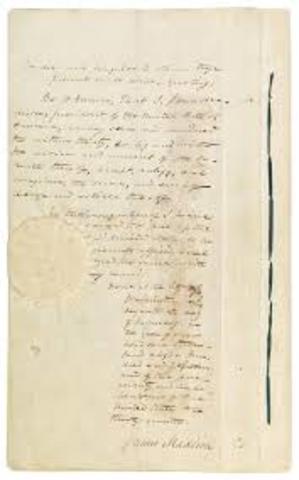 and singular to whom these
presents shall come, greeting:
Be it known, That I, James Mad-
ison, President of the United States of
America, having seen and considered
the within treaty, do, by and with
the advice and consent of the Se-
nate thereof, accept, ratify, and
confirm the same, and every
clause and article thereof.
In testimony whereof, I have
caused the seal of the
United States to be
hereunto affixed, and
signed the same with
my hand.
Done at the City of
Washington, this
day
of February, in
the year of our
Lord one thou-
sand eight hun-
dred and fifteen,
and of the
the
United States the
thirty-ninth.
James Madison